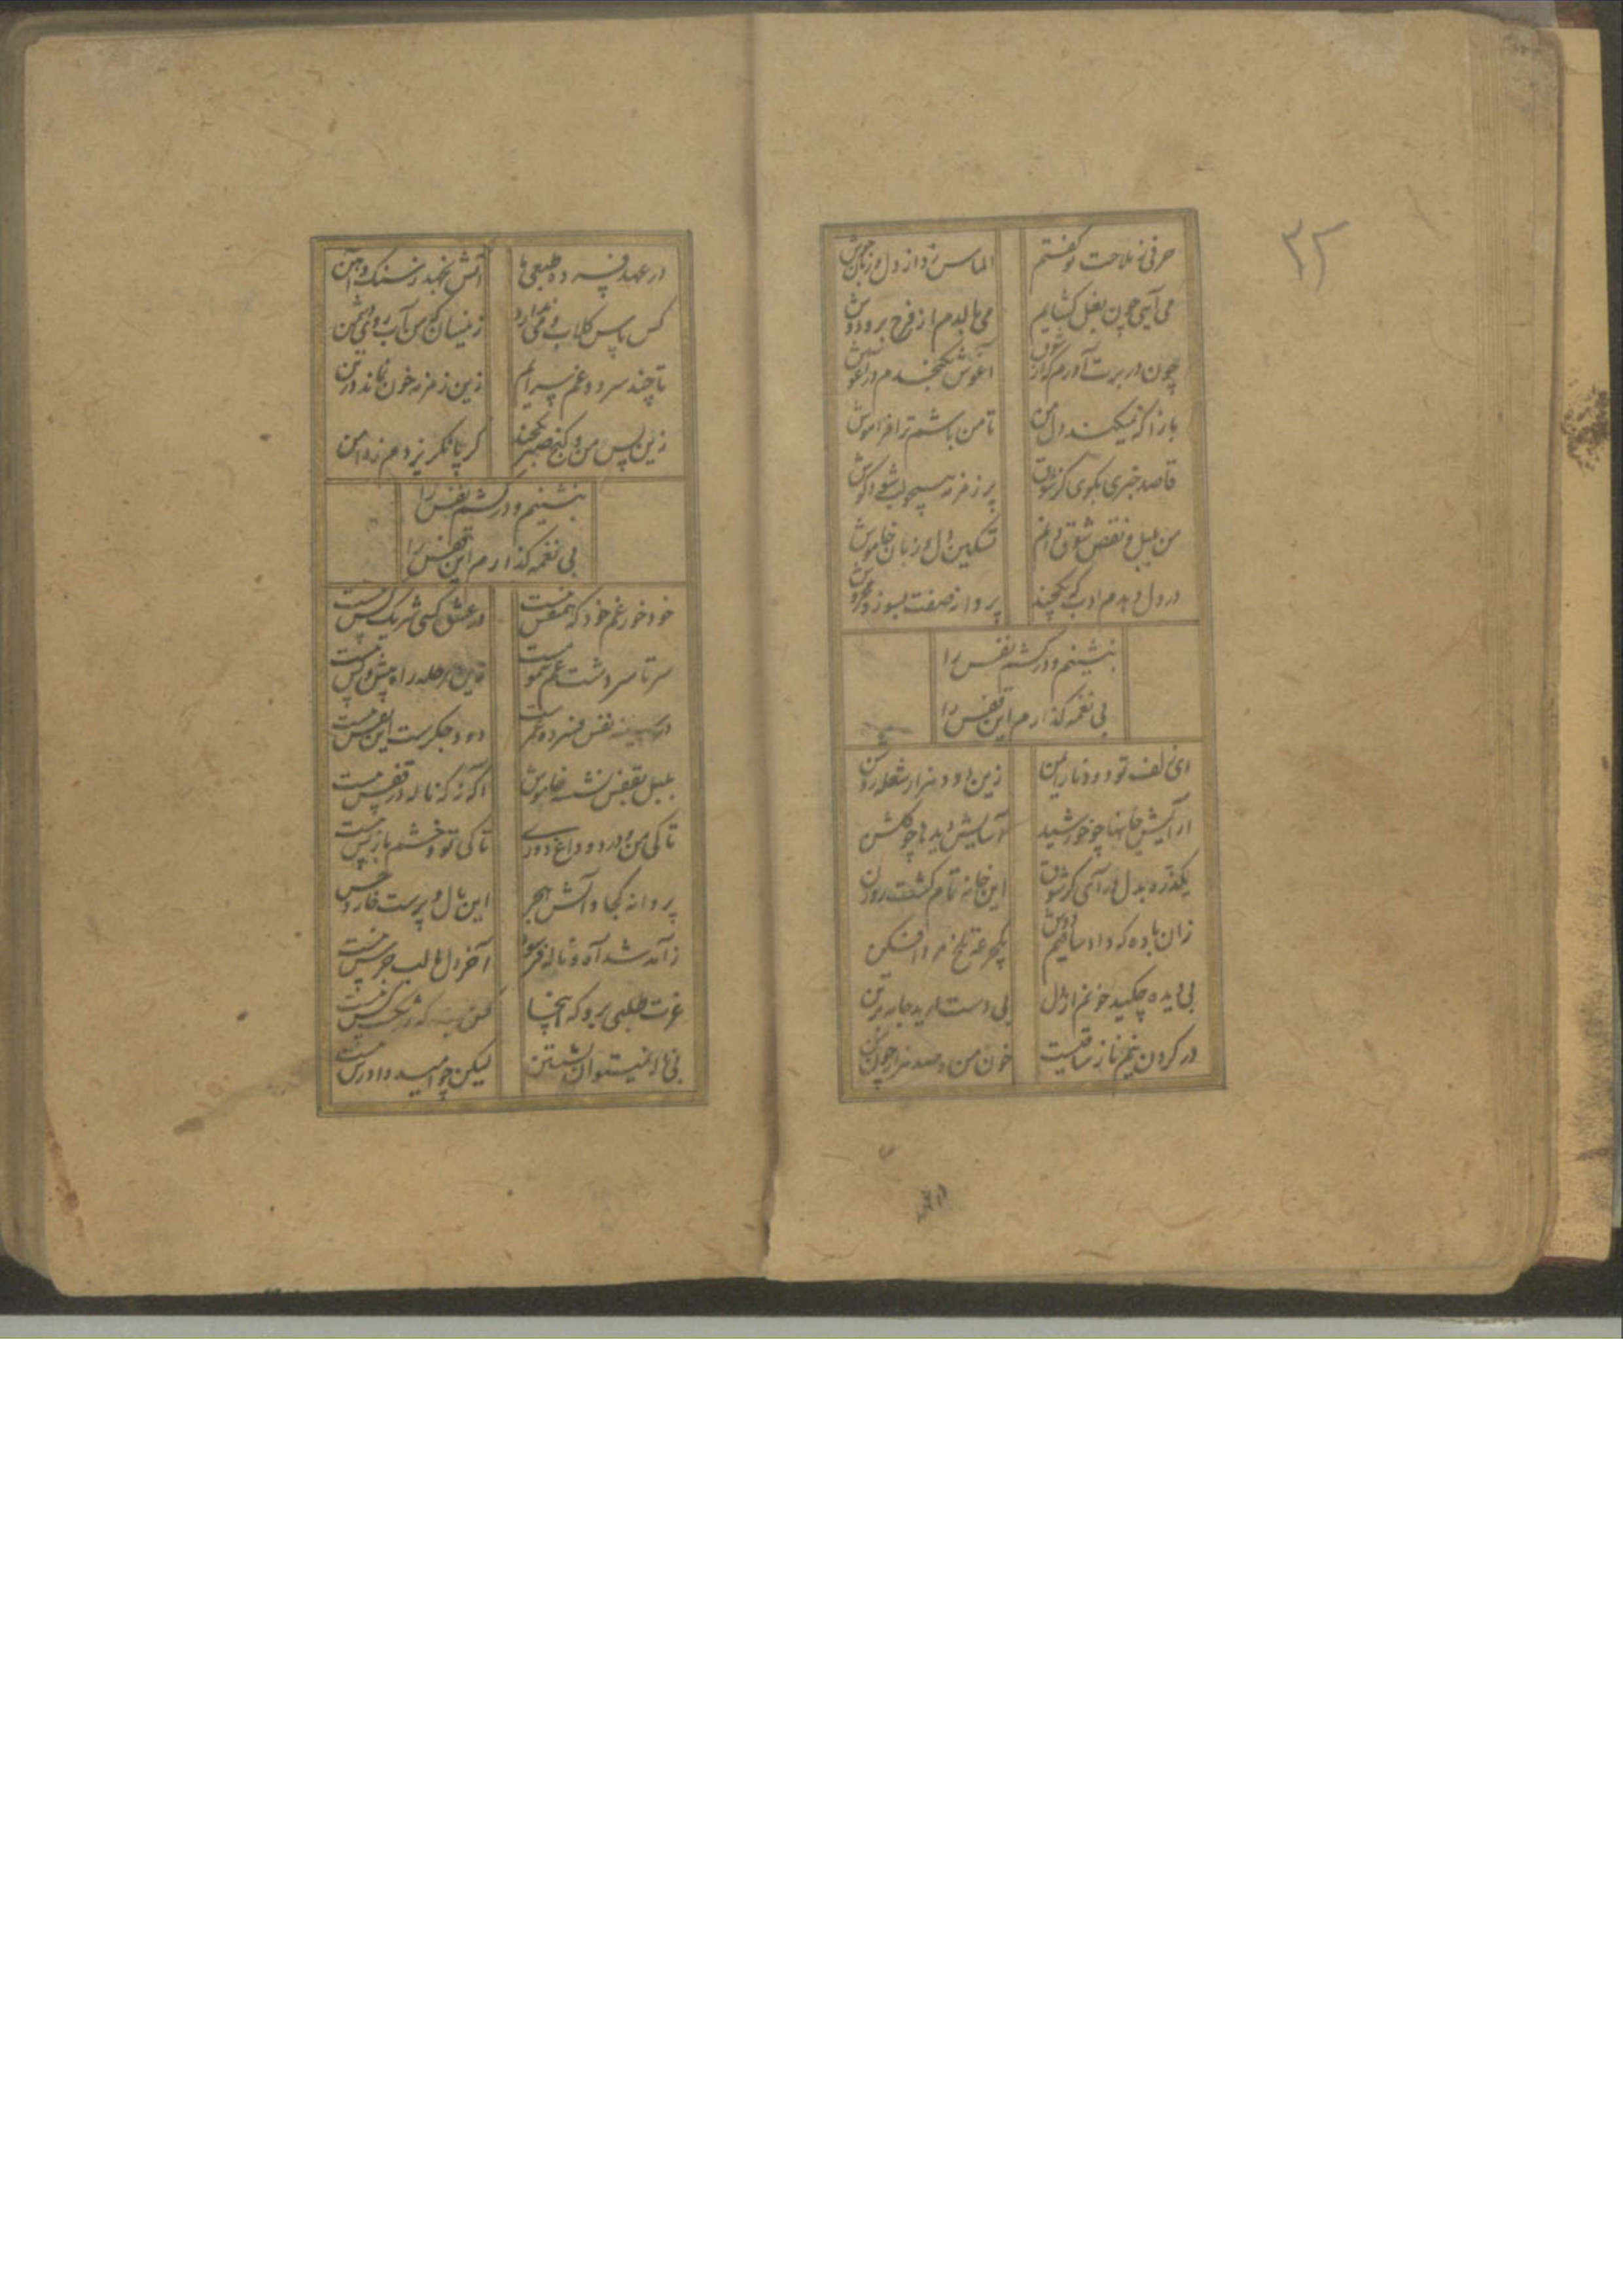 ۳۲
حرفی ز ملاحت تو گفتم
الماس زد از دل و زبان جوش
می آیی چون بغل گشایم
می بالدم از فرح بر و دوش
چون در برت آورم که از شوق
آغوش نگنجدم در آغوش
بازآ که نمیکند دل من
تا من باشم ترا فراموش
قاصد خبری بگوی کز شوق
پر زمزمه لب شود گوش
من بلبل و نقص شوق دانم
تسکین دل و زبان خاموش
در دل دهدم ادب که یکچند
پروانه صفت بسوز و مخروش
بنشینم و در کشم نفس را
بی نغمه گذارم این قفس را
ای زلف تو دود نار ایمن
زین دود هزار شعله روشن
آرایش جانها چو خورشید
آسایش دیدها چو گلشن
یکذره بدل درآی کز شوق
این خانه تمام گشت روزن
زان باده که داد ساقیم دوش
یکجرعه تلخ مرد افکن
بی دیده چکید خونم از دل
بی دست درید جامه بر تن
در گردن نیم ناز ساقیست
خون من و صد هزار چون من
در عهد فسرده طبعی ما
آتش نجهد ز سنگ و آهن
کس پاس گلاب و می ندارد
زینسان که من آب روی
تا چند سرود غم سرایم
زین زمزمه خون نماند در تن
زین پس من و کنج صبر یکچند
گر پا نگریزدم ز دامن
بنشینم و در کشم نفس را
بی نغمه گذارم این قفس را
خود خور غم خود که همنفس نیست
در عشق کسی شریک کس نیست
سر تا سر دشت غم سمومست
کاین مرحله راه پیش و پس نیست
در سینه نفس فسرده غمست
دود جگرست این نفس نیست
بلبل بقفس نشسته خاموش
آگه نه که ناله در قفس نیست
تا کی من و درد و داغ دوری
تا کی تو و خشم باز پس نیست
پروانه کجا و آتش هجر
این بال و پرست خار و خس نیست
ز آمد شد آه و ناله فرسود
آخر دل ما لب جرس نیست
عزت طلبی برو که اینجا
که در مگس نیست
بی ما نمیتوان نشستن
لیکن چو امید دادرس نیست